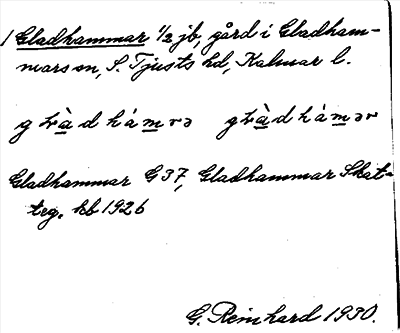 1 Gladhammar 1/2 jb, gård i Gladham-
mars sn, S. Tjusts hd, Kalmar l.
Gladhammar G 37, Gladhammar Skat-
teg. kb 1926
G. Reinhard 1930.